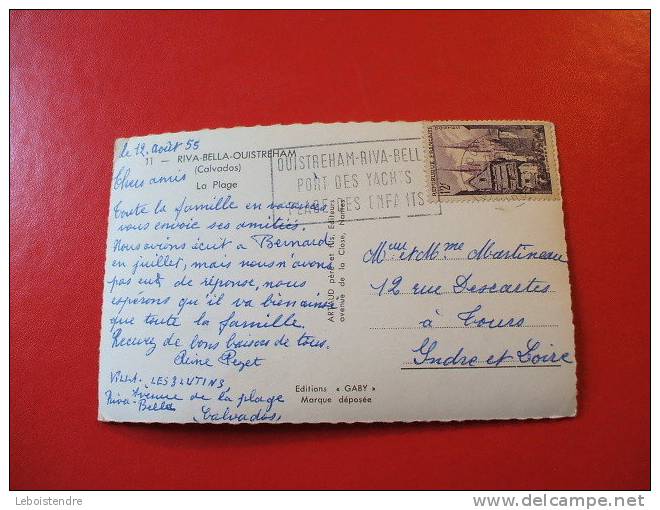 le 12 août 55
11 — RIVA-BELLA-OUISTREHAM
(Calvados)
La Plage
Chers amis
Toute la famille en vacances
vous envoie ses amitiés.
Nous avions écrit à Bernard
en juillet, mais nous n'avons
pas eu de réponse, nous
esperons qu'il va bien ainsi
que toute la famille.
Recevez de bons baisers de tous.
Pezet
VILLA LES LUTINS
Avenue de la plage
Riva-Bella
Calvados
OUISTREHAM-RIVA-BELL
PORT DES YACHTS
PLAGE DES ENFANTS
REPUBLIQUE FRANÇAISE
POSTES
12F
ARTAUD père et fils, Editeurs
avenue de la Close, Nantes
Editions « GABY »
Marque déposée
Mr et Mme Martineau
12 rue Descartes
à Tours
Indre et Loire
Leboistendre
www.delcampe.net